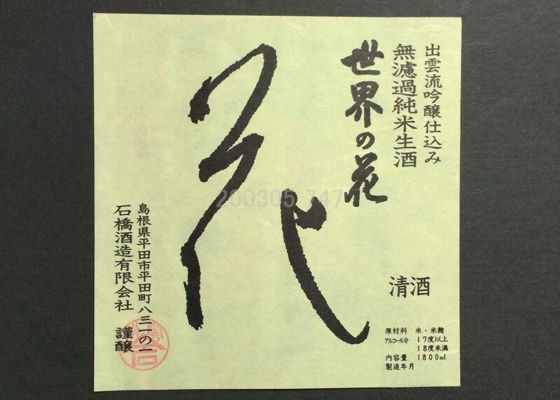 出雲流吟醸仕込み
無濾過純米生酒
世界の花
花
清酒
原材料 米・米麹
アルコール分 17度以上
18度未満
内容量 1800ml
製造年月
島根県平田市平田町八三一の一
石橋酒造有限会社 謹醸